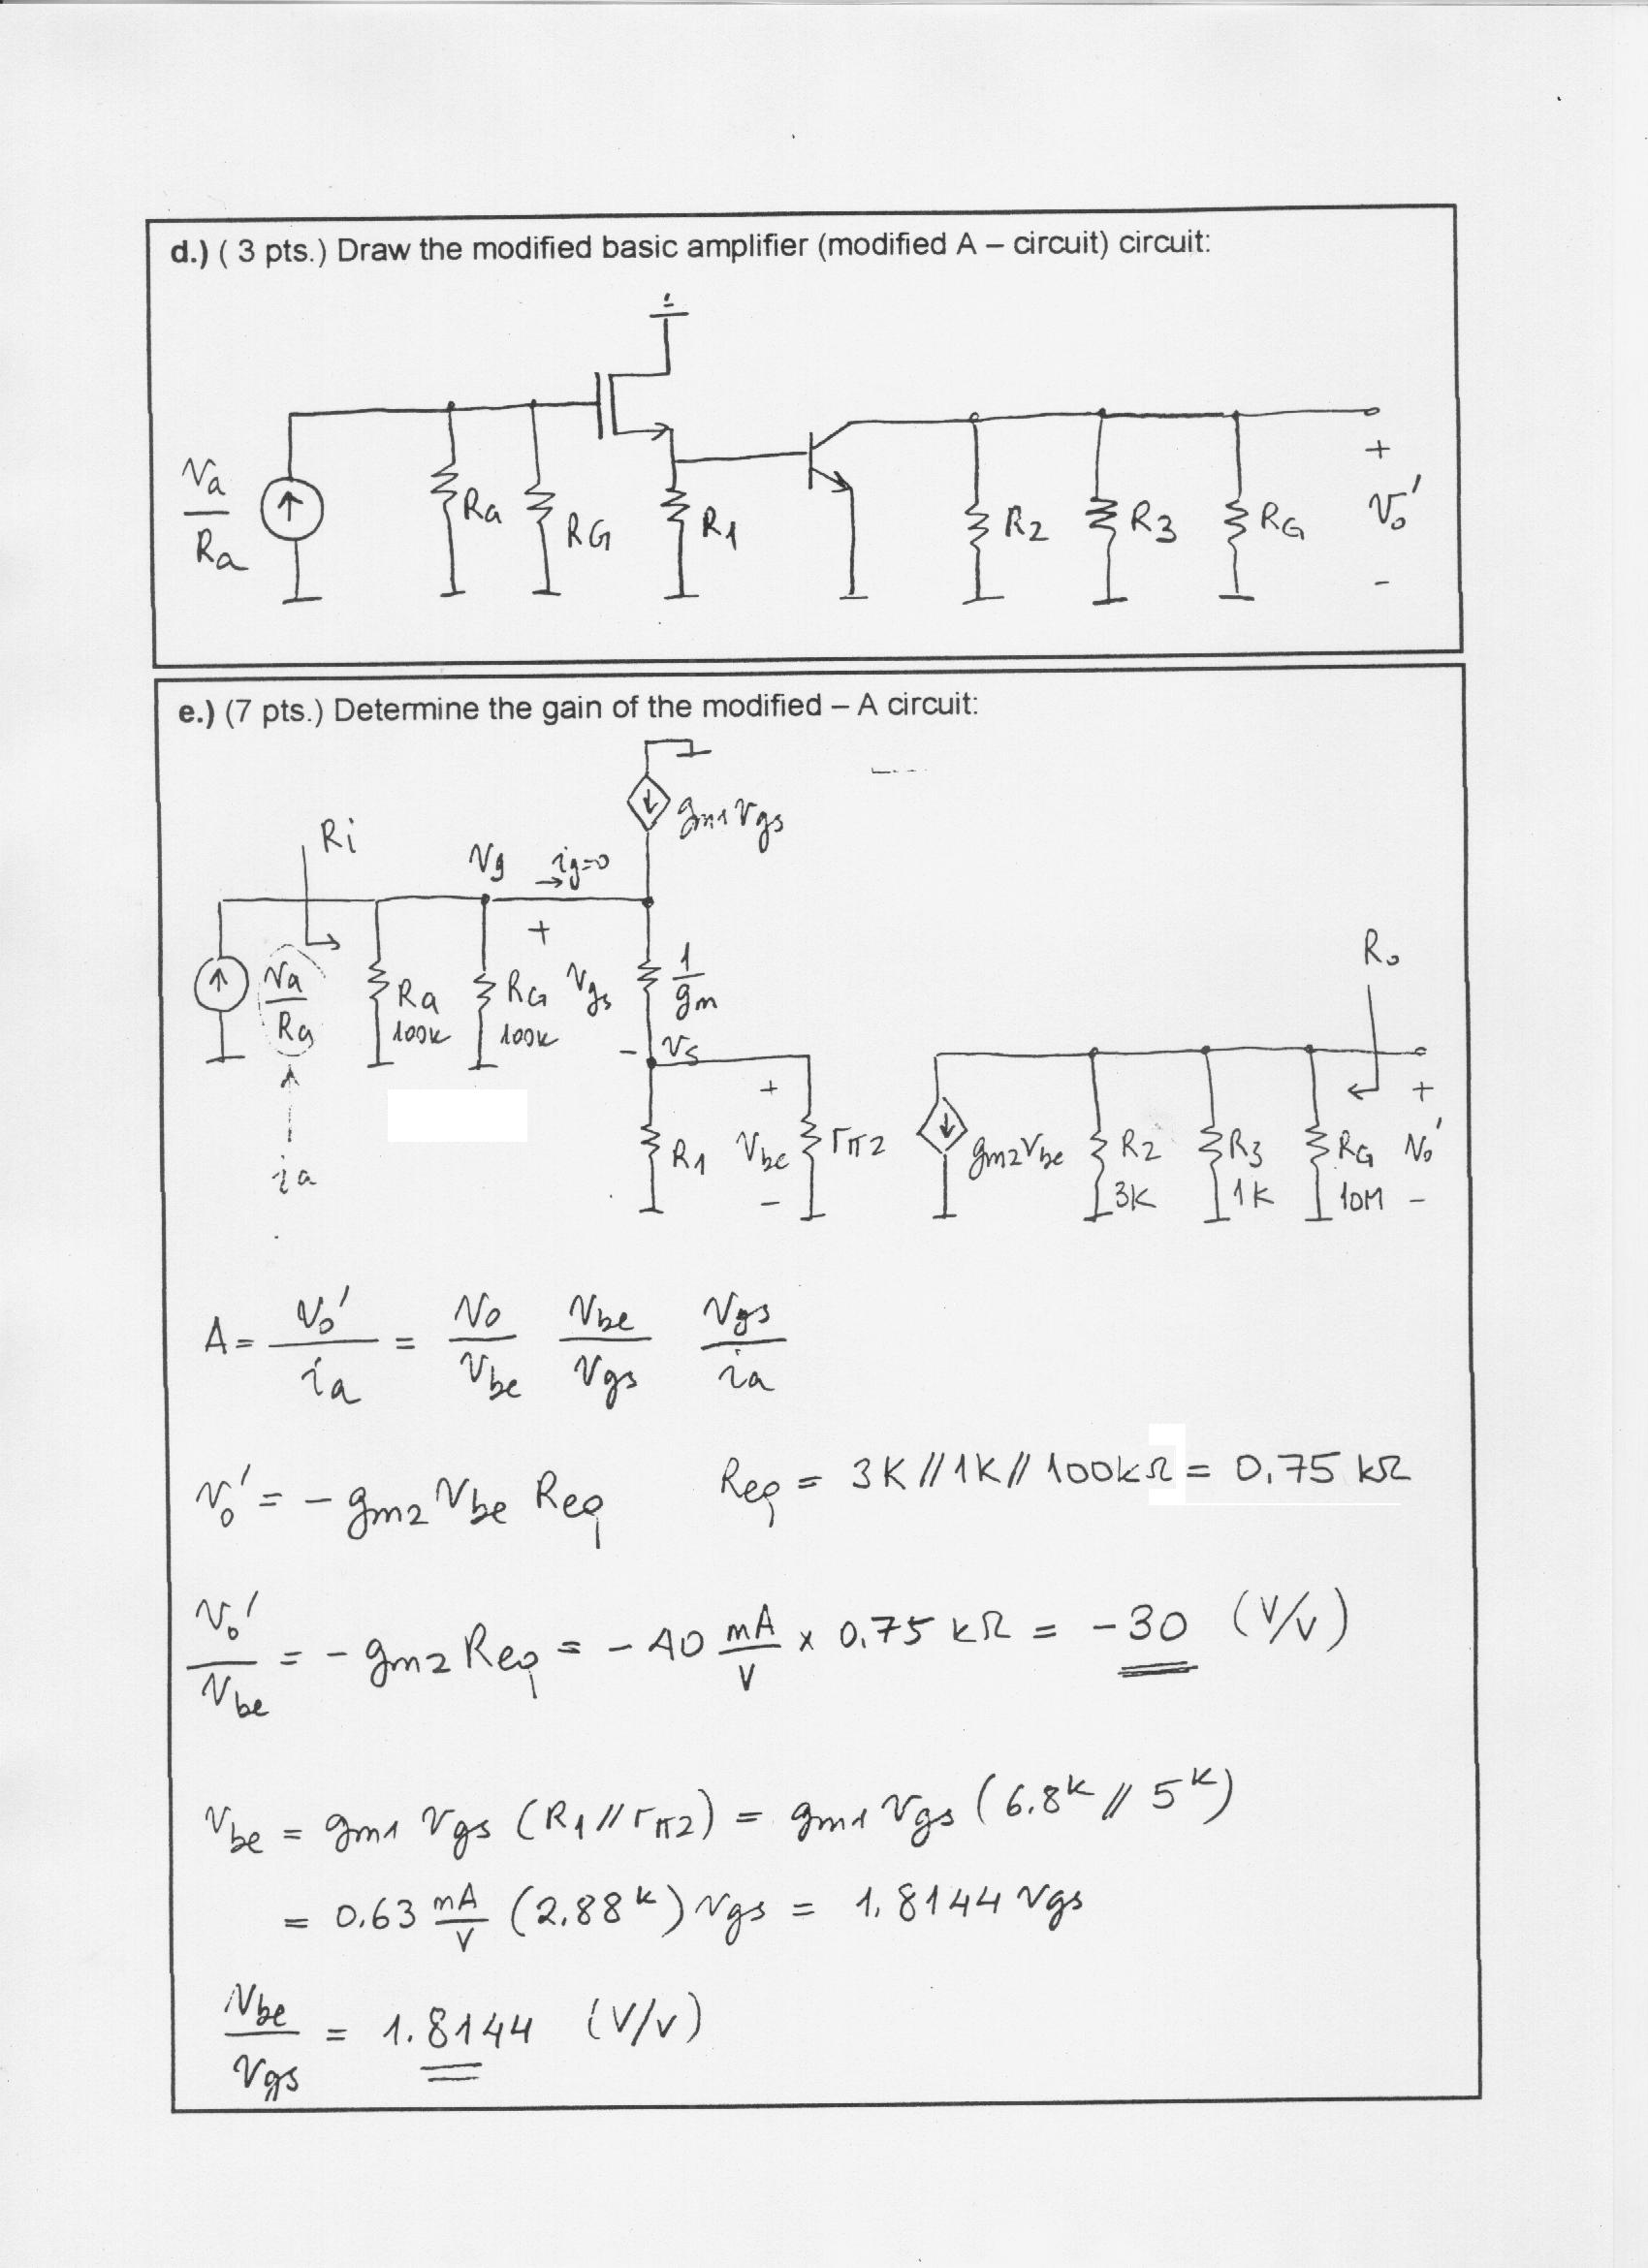 d.) ( 3 pts.) Draw the modified basic amplifier (modified A – circuit) circuit:
Va/Ra
Ra
RG
R1
R2
R3
RG
+
Vo'
-
e.) (7 pts.) Determine the gain of the modified – A circuit:
gm1 Vgs
Ri
Vg
ig=0
+
Va/Ra
Ra
100K
RG
100K
Vgs
1/gm
-
Vs
ia
R1
+
Vbe
-
rπ2
gm2Vbe
R2
3K
R3
1K
RG
10M
Ro
+
Vo'
-
A = Vo'/ia = Vo/Vbe Vbe/Vgs Vgs/ia
Vo' = - gm2 Vbe Req   Req = 3K // 1K // 100kΩ = 0.75 kΩ
Vo'/Vbe = - gm2 Req = - 40 mA/V x 0.75 kΩ = -30 (V/V)
Vbe = gm1 Vgs (R1 // rπ2) = gm1 Vgs (6.8k // 5k)
= 0.63 mA/V (2.88k) Vgs = 1.8144 Vgs
Vbe/Vgs = 1.8144 (V/V)